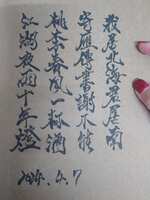 我居北海君居南
寄雁傳書謝不能
桃李春風一杯酒
江湖夜雨十年燈